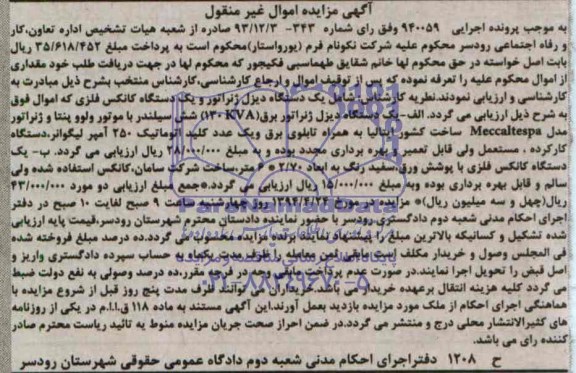 آگهی مزایده اموال غیر منقول
به موجب پرونده اجرایی ۹۴۰۰۵۹ وفق رای شماره ۳۴۳- ۹۳/۱۲/۳ صادره از شعبه هیات تشخیص اداره تعاون،کار
و رفاه اجتماعی رودسر محکوم علیه شرکت نکونام فرم (یورواستار)محکوم است به پرداخت مبلغ ۳۵/۶۱۸/۴۵۲ ریال
بابت اصل خواسته در حق محکوم لها خانم شقایق طهماسبی فکیجور که محکوم لها در جهت دریافت طلب خود مقداری
از اموال محکوم علیه را تعرفه نموده که پس از توقیف اموال و ارجاع کارشناسی،کارشناس منتخب بشرح ذیل مبادرت به
کارشناسی و ارزیابی نمودند.نظریه کارشناس شامل یک دستگاه دیزل ژنراتور و یک دستگاه کانکس فلزی که اموال فوق
به شرح ذیل ارزیابی می گردد. الف-یک دستگاه دیزل ژنراتور برق(۱۳۰KVA) شش سیلندر با موتور ولوو پنتا و ژنراتور
مدل Meccaltespa ساخت کشور ایتالیا به همراه تابلوی برق ویک عدد کلید اتوماتیک ۲۵۰ آمپر لیگوانر،دستگاه
کارکرده ، مستعمل ولی قابل تعمیر و بهره برداری مجدد بوده و به مبلغ ۲۸/۰۰۰/۰۰۰ ریال ارزیابی می گردد. ب- یک
دستگاه کانکس فلزی با پوشش ورق،سفید رنگ به ابعاد ۲/۷۰* متر،ساخت شرکت سامان،کانکس استفاده شده ولی
سالم و قابل بهره برداری بوده وبه مبلغ ۱۵/۰۰۰/۰۰۰ ریال ارزیابی می گردد.*جمع مبلغ ارزیابی دو مورد ۴۳/۰۰۰/۰۰۰
ریال(چهل و سه میلیون ریال)* مزایده در مورخ ۱۳۹۴/۴/۲۴ روز چهارشنبه ساعت ۹ صبح لغایت ۱۰ صبح در دفتر
اجرای احکام مدنی شعبه دوم دادگستری رودسر با حضور نماینده دادستان محترم شهرستان رودسر،قیمت پایه ارزیابی
شده تشکیل و کسانیکه بالاترین مبلغ را پیشنهاد نمایند برنده مزایده محسوب می گردد.ده درصد مبلغ فروخته شده
فی المجلس وصول و خریدار مکلف است مابقی ثمن معامله را ظرف مدت یکماه به حساب سپرده دادگستری واریز و
اصل قبض را تحویل اجرا نمایند.در صورت عدم پرداخت مابقی وجه در فرجه مقرر،ده درصد وصولی به نفع دولت ضبط
می گردد کلیه هزینه انتقال برعهده خریدار می باشد.خریداران می توانند ظرف مدت پنج روز قبل از شروع مزایده با
هماهنگی اجرای احکام از ملک مورد مزایده بازدید بعمل آورند.این آگهی مستند به ماده ۱۱۸ ق.ا.ا.م در یکی از روزنامه
های کثیرالانتشار محلی درج و منتشر می گردد.در ضمن احراز صحت جریان مزایده منوط به تائید ریاست محترم صادر
کننده رای می باشد.
ح ۱۲۰۸ دفتراجرای احکام مدنی شعبه دوم دادگاه عمومی حقوقی شهرستان رودسر
۰۲۱-۸۸۳۴۹۶۷۰-۵